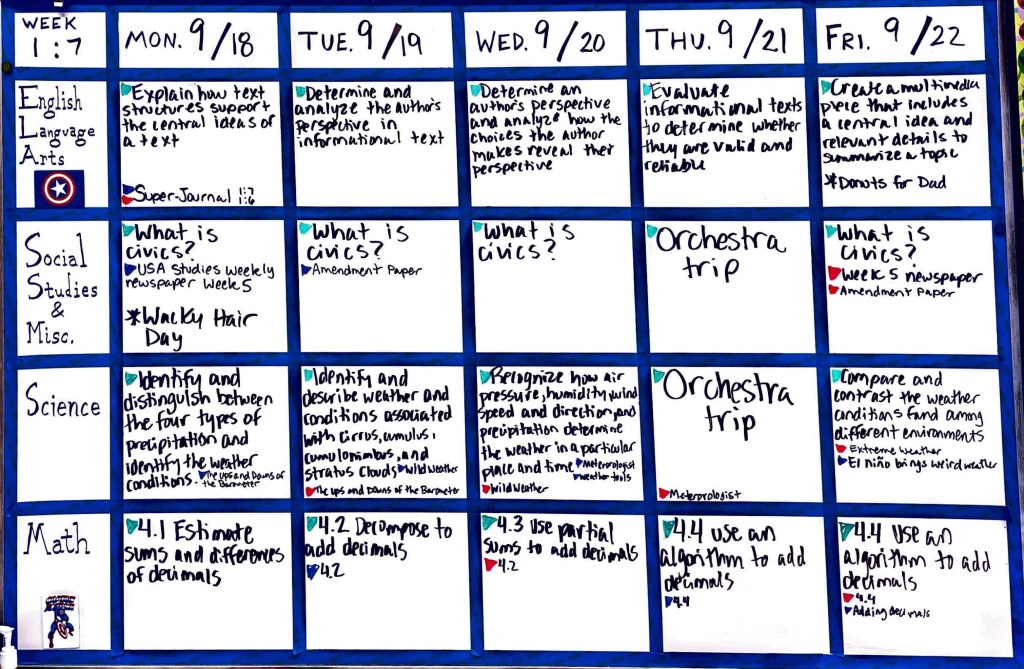 WEEK
1:7
MON. 9/18
TUE. 9/19
WED. 9/20
THU. 9/21
FRI. 9/22
English
Language
Arts
Explain how text
structures support
the central ideas of
a text
Super-Journal 1:7
Determine and
analyze the author's
perspective in
informational text
Determine an
author's perspective
and analyze how the
choices the author
makes reveal their
perspective
Evaluate
informational texts
to determine whether
they are valid and
reliable
Create a multimedia
piece that includes
a central idea and
relevant details to
summarize a topic
*Donuts for Dad
Social
Studies
&
Misc.
What is
civics?
USA Studies Weekly
newspaper Week 5
*Wacky Hair
Day
What is
civics?
Amendment Paper
What is
civics?
Orchestra
trip
What is
civics?
Week 5 newspaper
Amendment Paper
Science
Identify and
distinguish between
the four types of
precipitation and
identify the weather
conditions. The Ups and Downs of
the Barometer
Identify and
describe weather and
conditions associated
with cirrus, cumulus,
cumulonimbus, and
stratus clouds Wild Weather
The Ups and Downs of the Barometer
Recognize how air
pressure, humidity, wind
speed and direction, and
precipitation determine
the weather in a particular
place and time Meteorologist
weather tools
Wild Weather
Orchestra
trip
Meterorologist
Compare and
contrast the weather
conditions found among
different environments
Extreme Weather
El Niño brings weird weather
Math
4.1 Estimate
sums and differences
of decimals
4.2 Decompose to
add decimals
4.2
4.3 Use partial
sums to add decimals
4.2
4.4 use an
algorithm to add
decimals
4.4
4.4 Use an
algorithm to add
decimals
4.4
Adding Decimals